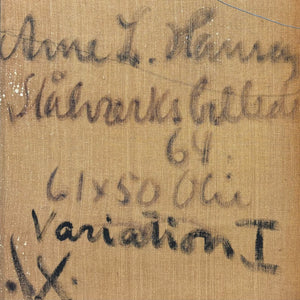 Arne L. Hansen
Stålværksbillede
64.
61x50 Olie
Variation I
.X.